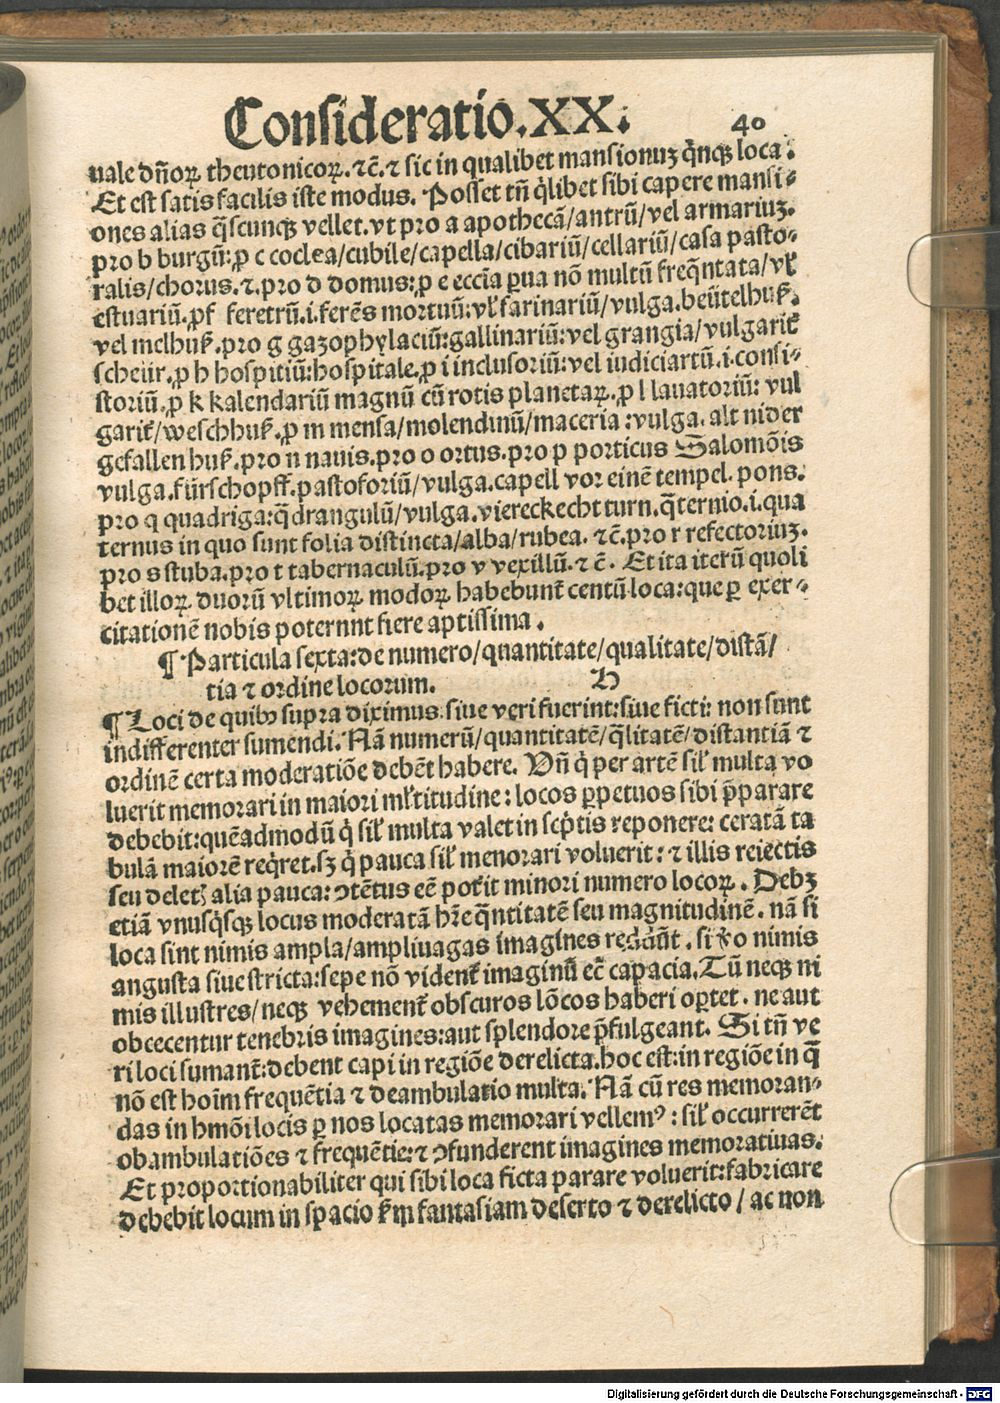 Consideratio.XX.
40
uale dñoꝝ theutonicoꝝ.⁊c̄.⁊ sic in qualibet mansionuꝫ q̈nqꝫ loca.
Et est satis facilis iste modus. Posset tñ q̇libet sibi capere mansi⸗
ones alias q̄scunqꝫ vellet.vt pro a apothecā/antrū/vel armariuꝫ.
pro b burgū:ꝓ c coclea/cubile/capella/cibariū/cellariū/casa pasto⸗
ralis/chorus.⁊.pro d domus:ꝓ e eccīa ꝑua nō multū freq̄ntata/vł
estuariū.ꝓf feretrū.i.ferēs mortuū:vł farinariū/vulga.beütelhuß.
vel melhuß.pro g gazophylaciū:gallinariū:vel grangia/vulgarit̉
scheür.ꝓ h hospitiū:hospitale.ꝓ i inclusoriū:vel iudiciartū.i.consi⸗
storiū.ꝓ k kalendariū magnū cū rotis planetaꝝ.ꝓ l lauatoriū: vul
garit̉/weschhuß.ꝓ m mensa/molendinū/maceria:vulga.alt nider
gefallen huß.pro n nauis.pro o ortus.pro p porticus Salomōis
vulga.fürschopff.pastoforiū/vulga.capell vor einē tempel.pons.
pro q quadriga:q̄drangulū/vulga.viereckecht turn.q̄ternio.i.qua
ternus in quo sunt folia distincta/alba/rubea.⁊c̄.pro r refectoriuꝫ.
pro s stuba.pro t tabernaculū.pro v vexillū.⁊c̄. Et ita iterū quoli
bet illoꝝ duorū vltimoꝝ modoꝝ habebunt̉ centū loca:que ꝑ exer⸗
citationē nobis poternnt fiere aptissima.
¶ Particula sexta:de numero/quantitate/qualitate/distā/
tia ⁊ ordine locorum. H
¶ Loci de quibꝰ supra diximus.siue veri fuerint:siue ficti: non sunt
indifferenter sumendi. Nā numerū/quantitatē/q̄litatē/distantiā ⁊
ordinē certa moderatiōe debēt habere. Vñ q̇ per artē sił multa vo
luerit memorari in maiori młtitudine: locos ꝑpetuos sibi p̄parare
debebit:quēadmodū q̇ sił multa valet in scp̄tis reponere: ceratā ta
bulā maiorē req̇ret.sꝫ q̇ pauca sił menorari voluerit: ⁊ illis reiectis
seu deletꝭ alia pauca: ꝯtētus eē pot̉it minori numero locoꝝ. Debꝫ
etiā vnusq̇sqꝫ locus moderatā hr̄e q̄ntitatē seu magnitudinē. nā si
loca sint nimis ampla/ampliuagas imagines reddūt. si v̉o nimis
angusta siue stricta:sepe nō vident̉ imaginū eē capacia. Tū neqꝫ ni
mis illustres/neqꝫ vehement̉ obscuros lōcos haberi oꝑtet. ne aut
obcecentur tenebris imagines:aut splendore p̄fulgeant. Si tñ ve
ri loci sumant̉:debent capi in regiōe derelicta.hoc est:in regiōe in q̄
nō est hoīm frequētia ⁊ deambulatio multa. Nā cū res memoran⸗
das in hmōi locis ꝑ nos locatas memorari vellemꝰ: sił occurrerēt
obambulatiōes ⁊ frequētie:⁊ ꝯfunderent imagines memoratiuas.
Et proportionabiliter qui sibi loca ficta parare voluerit:fabricare
debebit locum in spacio ẜm fantasiam deserto ⁊ derelicto/ ac non
Digitalisierung gefördert durch die Deutsche Forschungsgemeinschaft - DFG